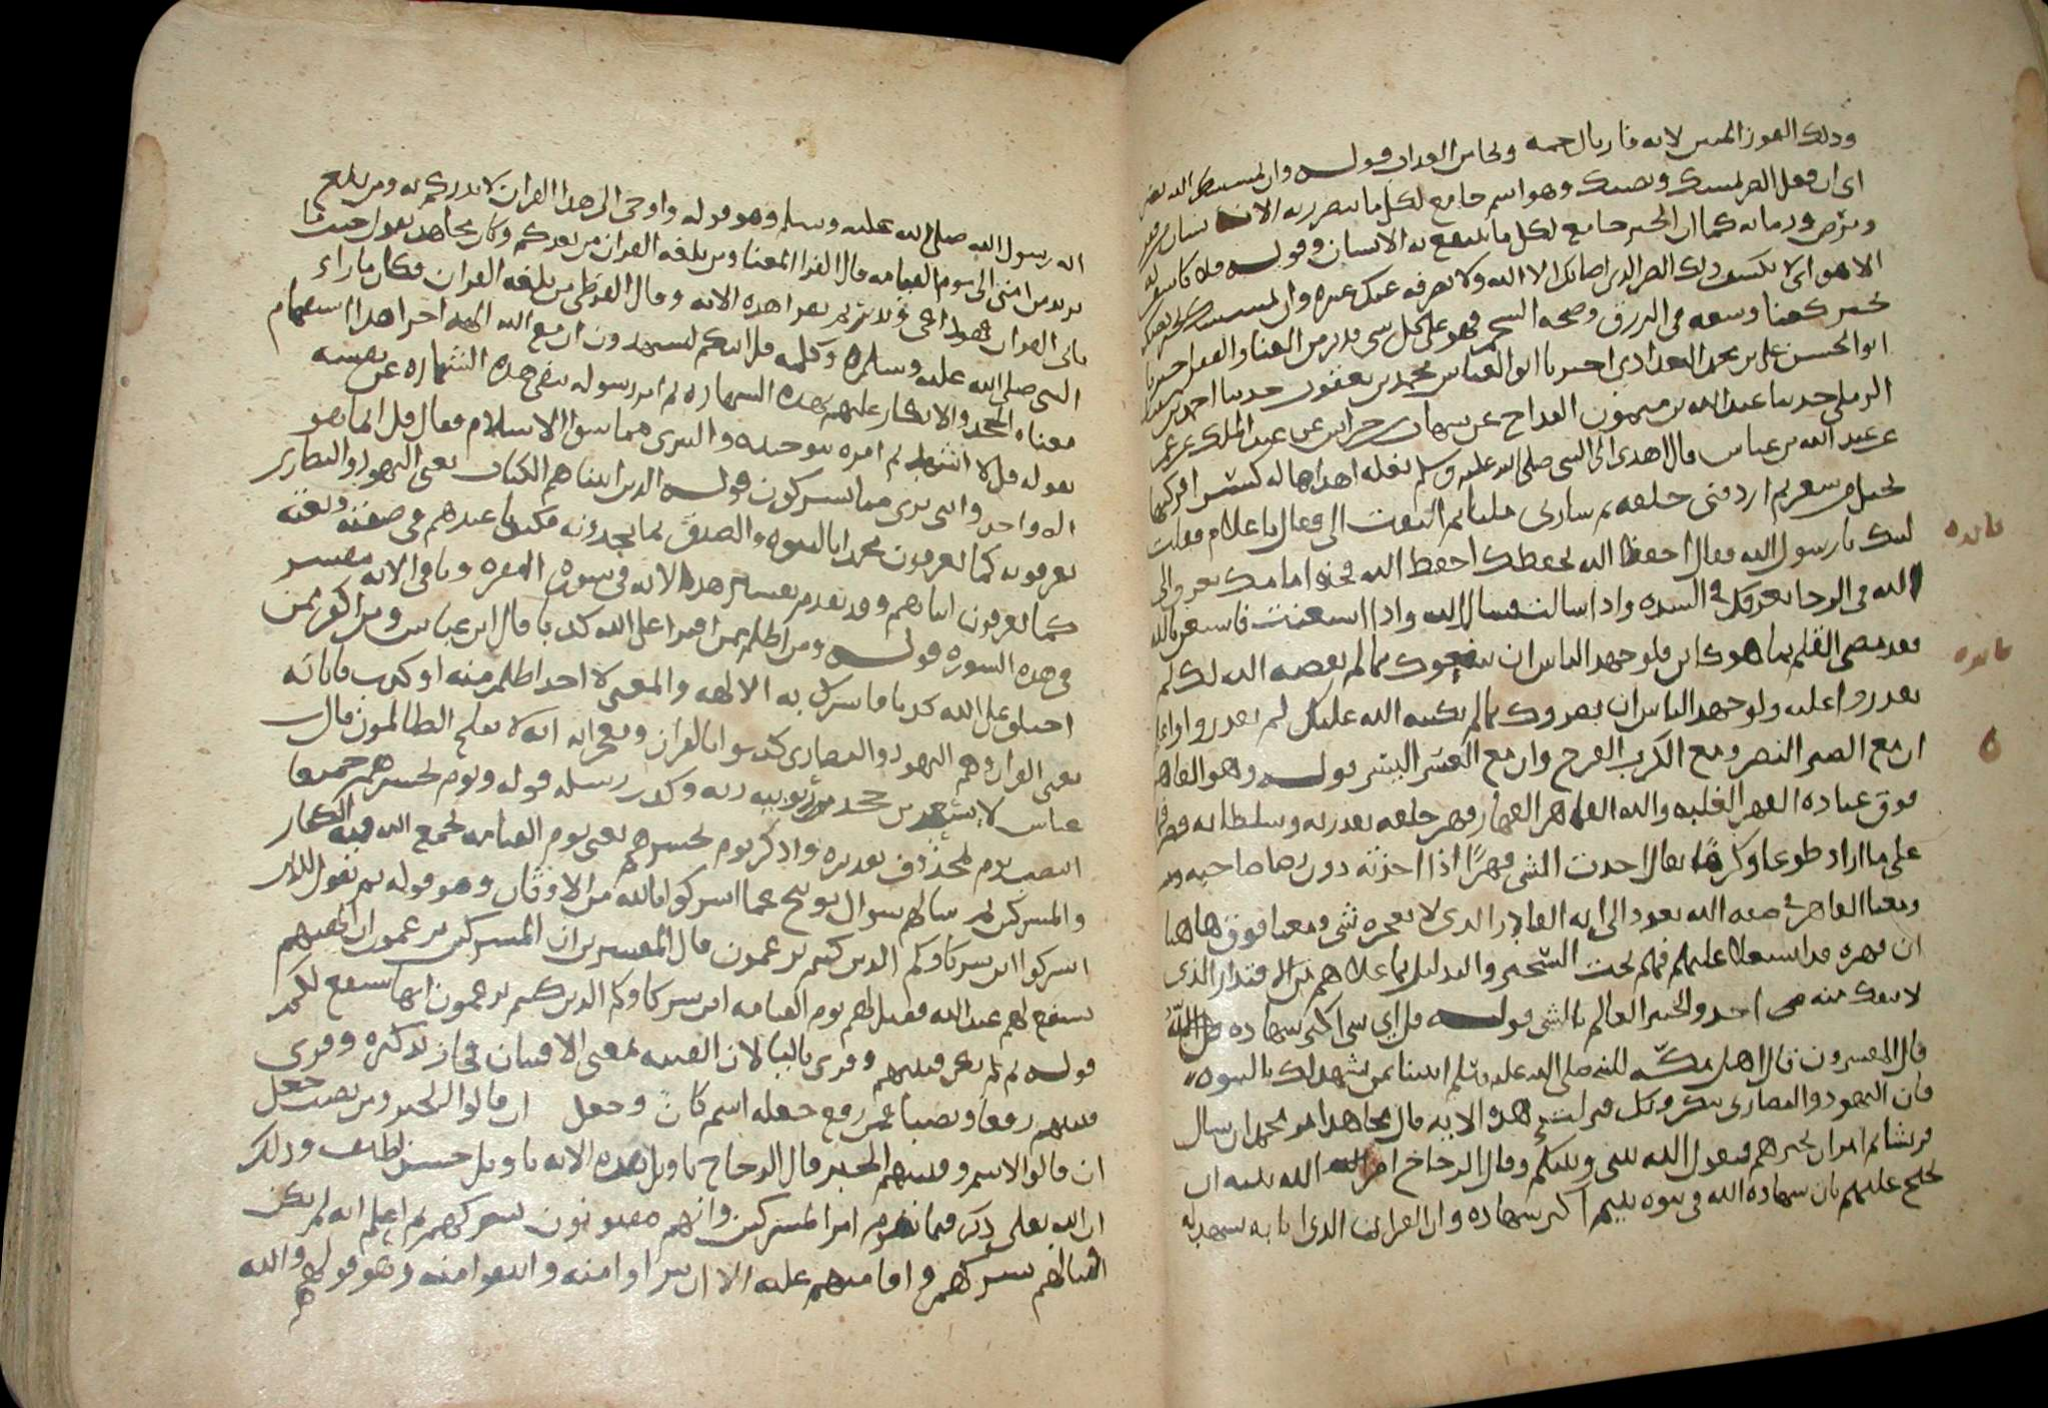 وذلك الفوز المبين لانه فاز بالرحمة ونجا من العذاب قوله وان يمسسك الله بضر
اي ان جعل الضر يمسك ويصيبك وهو اسم جامع لكل ما يتضرر به الانسان من فقر
ومرض وزمانة كما ان الخير جامع لكل ما ينتفع به الانسان وقوله فلا كاشف له
الا هو اي لا يكشف ذلك الضر الذي اصابك الا الله ولا يصرفه عنك غيره وان يمسسك
بخير كغنا وسعة في الرزق وصحة الجسم فهو على كل شي قدير من الغنا والفقر اخبرنا
ابو الحسن علي بن محمد البغدادي اخبرنا ابو العباس محمد بن يعقوب حدثنا احمد بن
الرملي حدثنا عبد الله بن ميمون القداح عن شهاب بن خراش عن عبد الملك بن عمير
عن عبد الله بن عباس قال اهدي الى النبي صلى الله عليه وسلم بغلة اهداها له كسرى فركبها
بحبل من شعر ثم اردفني خلفه ثم سار بي مليا ثم التفت الي فقال يا غلام فقلت
لبيك يا رسول الله فقال احفظ الله يحفظك احفظ الله تجده امامك تعرف الى
الله في الرخا يعرفك في الشدة واذا سالت فسال الله واذا استعنت فاستعن بالله
فقد مضى القلم بما هو كاين فلو جهد الناس ان ينفعوك بما لم يقضه الله لك لم
يقدروا عليه ولو جهد الناس ان يضروك بما لم يكتبه الله عليك لم يقدروا
ان مع الصبر النصر ومع الكرب الفرج وان مع العسر اليسر قوله وهو القاهر
فوق عباده القهر الغلبة والله القاهر القهار قهر خلقه بقدرته وسلطانه فصرفهم
على ما اراد طوعا وكرها يقال اخذت الشي قهرا اذا اخذته دون رضا صاحبه
ومعنا القاهر في صفة الله يعود الى انه القادر الذي لا يعجزه شي ومعنا فوق هاهنا
ان قهره قد استعلا عليهم فهم تحت التسخير والتدليل بما علاهم من الاقتدار الذي
لا ينفك منه احد والخبير العالم بالشي قوله قل اي شي اكبر شهادة قل الله
قال المفسرون قال اهل مكة للنبي صلى الله عليه وسلم ايتنا بمن يشهد لك بالنبوة
فان اليهود والنصارى تنكرونك فنزلت هذه الاية قال مجاهد امر محمد ان يسال
قريشا ثم امر ان يخبرهم فيقول الله بيني وبينكم وقال الزجاج امر الله نبيه ان
يحتج عليهم بان شهادة الله في نبوة نبيهم اكبر شهادة وان القران الذي اتا به يشهد له
فائدة
فائدة
انه رسول الله صلى الله عليه وسلم وهو قوله واوحي الي هذا القران لانذركم به ومن بلغ
يريد من امتي الى يوم القيامة قال الفرا المعنا ومن بلغه القران من بعدكم وكان مجاهد يقول حيث ما
ياتي القران فهو داعي ونذير ثم يقرا هذه الاية وقال القرظي من بلغه القران فكانما راى
النبي صلى الله عليه وسلم وكلمه قل ائنكم لتشهدون ان مع الله الهة اخرى هذا استفهام
معناه الجحد والانكار عليهم بهذه الشهادة ثم امر رسوله بنفي هذه الشهادة عن نفسه
بقوله قل لا اشهد ثم امره بتوحيده والتبري مما سوا الاسلام فقال قل انما هو
اله واحد وانني بري مما تشركون قوله الذين اتيناهم الكتاب يعني اليهود والنصارى
يعرفونه كما يعرفون محمدا بالنبوة والصدق بما يجدونه مكتوبا عندهم في صفته ونعته
كما يعرفون ابناهم وقد تقدم تفسير هذه الاية في سورة البقرة وباقي الاية مفسر
في هذه السورة قوله ومن اظلم ممن افترا على الله كذبا قال ابن عباس ومن اكفر ممن
اختلق على الله كذبا فاشرك به الالهة والمعنى لا احد اظلم منه او كذب باياته
يعني القران وهم اليهود والنصارى كذبوا بالقران انه لا يفلح الظالمون قال ابن
عباس لا يسعد من جحد ربوبية ربه وكذب رسله قوله ويوم نحشرهم جميعا
انتصب يوم بمحذوف تقديره واذكر يوم نحشرهم يعني يوم القيامة نجمع الله فيه الكفار
والمشركين ثم سالهم سوال توبيخ عما اشركوا بالله من الاوثان وهو قوله ثم نقول للذين
اشركوا اين شركاوكم الذين كنتم تزعمون قال المفسرون ان المشركين يزعمون ان الهتهم
تشفع لهم عند الله فقيل لهم يوم القيامة اين شركاوكم الذين كنتم تزعمون انها تشفع لكم
قوله ثم لم تكن فتنتهم وقرى باليا لان الفتنة بمعنى الافتتان فجاز تذكيره وقرى
فتنتهم رفعا ونصبا فمن رفع جعله اسم كان وجعل ان قالوا الخبر ومن نصب جعل
ان قالوا الاسم وفتنتهم الخبر قال الزجاج تاويل هذه الاية تاويل حسن لطيف وذلك
ان الله تعلى ذكر فيما تقدم امر المشركين وانهم مفتونون بشركهم ثم اعلم انه لم يكن
افتتانهم بشركهم واقامتهم عليه الا ان تبراوا منه وانتفوا منه وهو قولهم والله